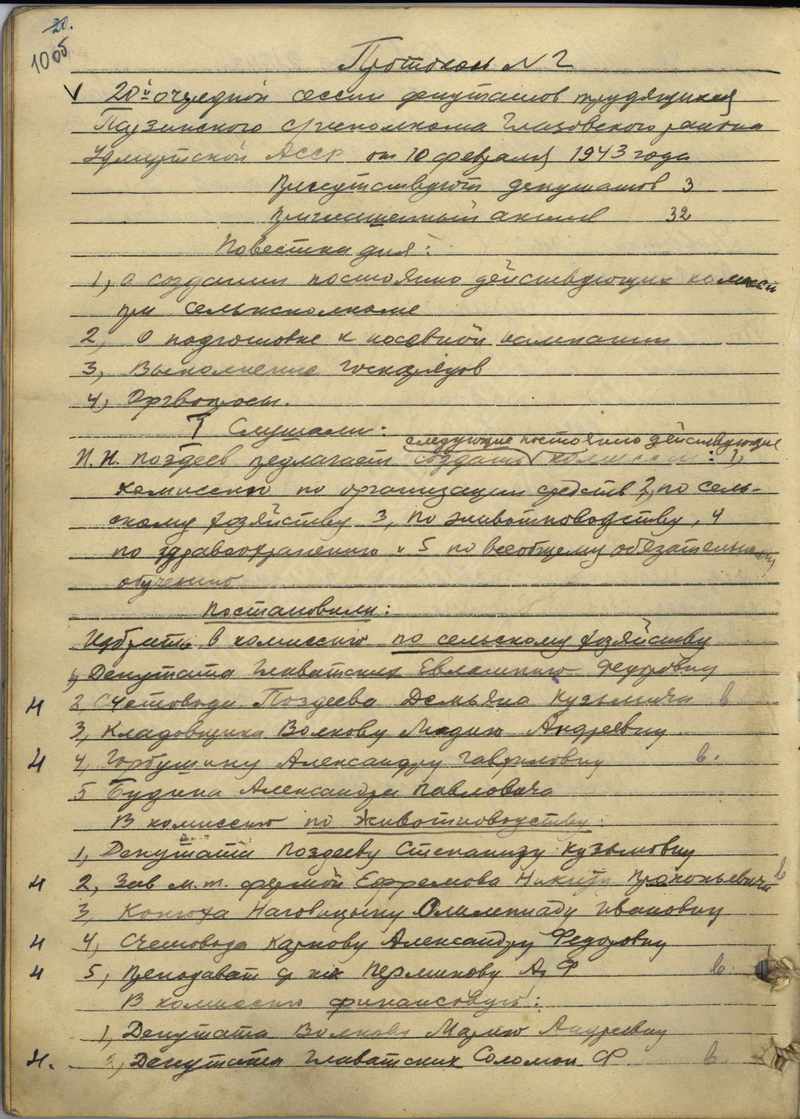 20.
10об
Протокол N 2
V 20й очередной сессии депутатов трудящихся
Пузинского с/исполкома Глазовского района
Удмуртской АССР от 10 февраля 1943 года
Присутствуют депутатов 3
Приглашенный актив 32
Повестка дня:
1, о создании постоянно действующих комиссий
при сельисполкоме
2, О подготовке к посевной кампании
3, Выполнение госнарядов
4, Оргвопросы.
I Слушали:
следующие постоянно действующие
И.Н. Поздеев предлагает создать комиссии: 1,
комиссию по организации средств 2, по сель-
скому хозяйству 3, по животноводству, 4
по здравоохранению и 5 по всеобщему обязательному
обучению
Постановили:
Избрать в комиссию по сельскому хозяйству
1, Депутата Главатских Евлампию Федоровну
ч 2 Счетовода Поздеева Демьяна Кузьмича в
3, Кладовщика Волкову Марию Андреевну
ч 4, Горбушину Александру Гавриловну в.
5 Будина Александра Павловича
В комиссию по животноводству:
1, Депутата Поздееву Степаниду Кузьмовну
ч 2, Зав м.т. фермой Ефремова Никиту Прокопьевича в
3, Конюха Наговицыну Олимпиаду Ивановну
ч 4, Счетовода Карпову Александру Федоровну
ч 5, Преподават Перминову А, Ф в.
В комиссию финансовую:
1, Депутата Волкову Марию Андреевну
ч. 2, Депутата Главатских Соломон. Ф. в.